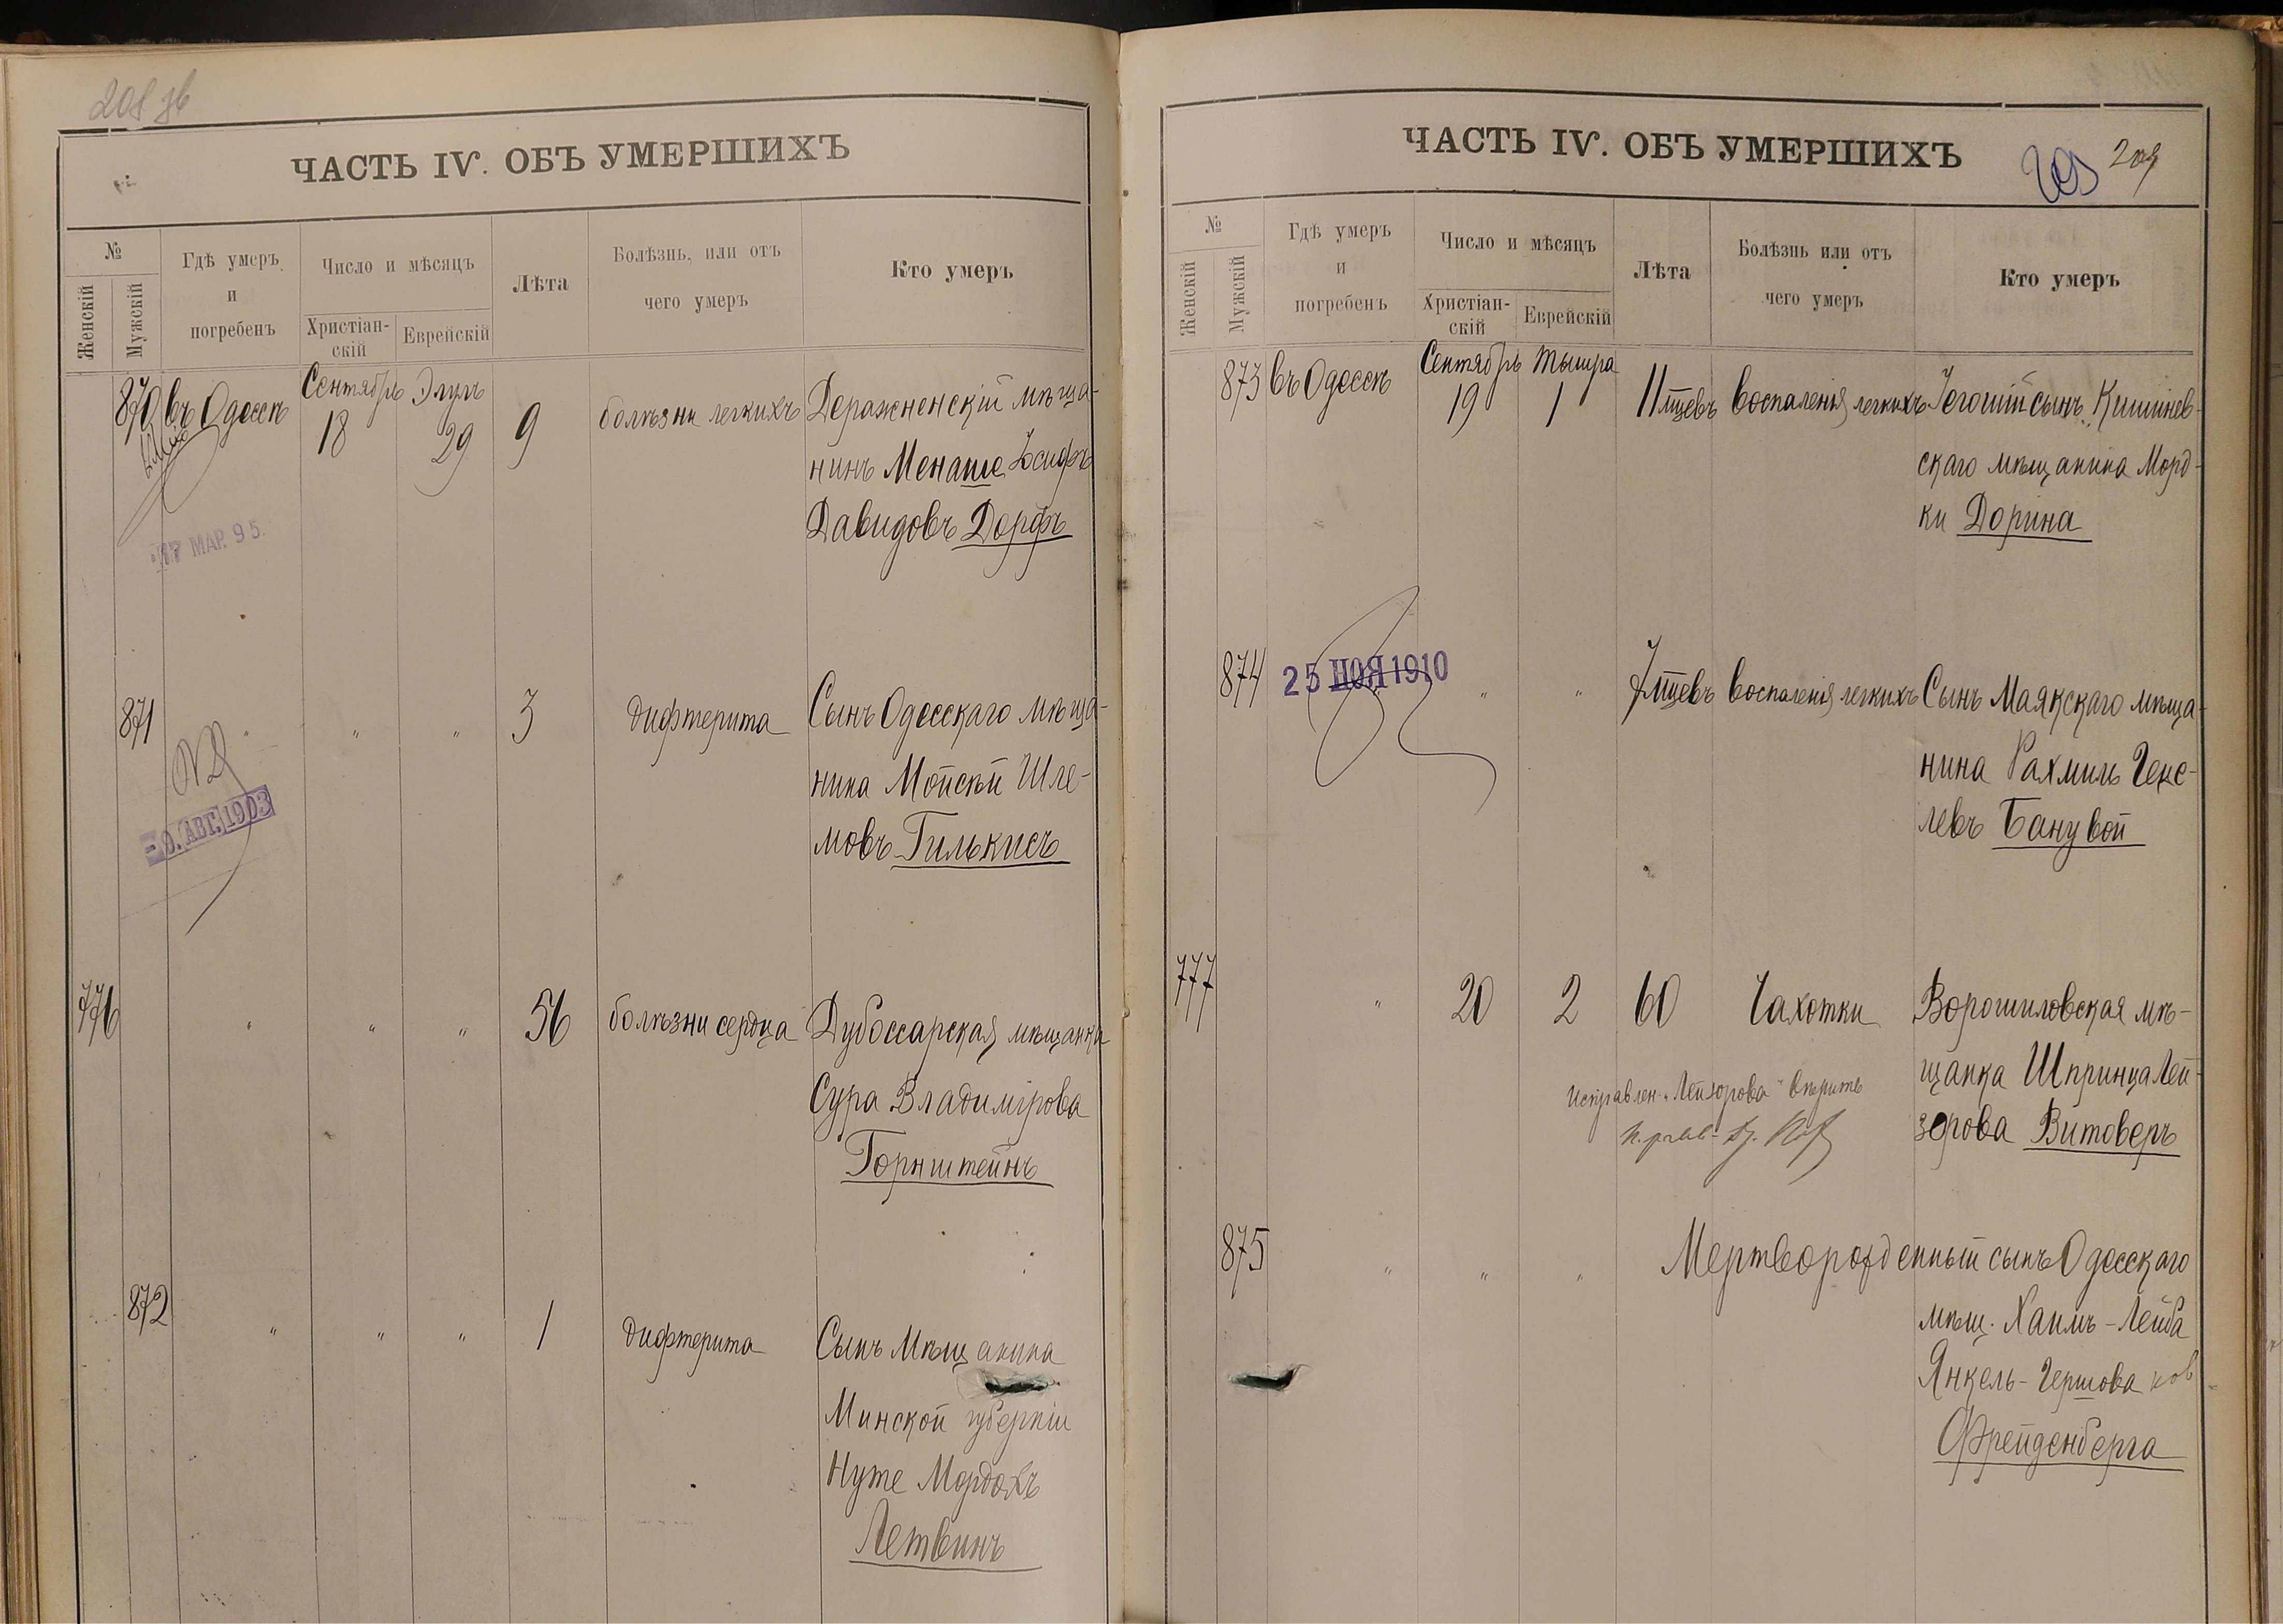 208 об
ЧАСТЬ IV. ОБЪ УМЕРШИХЪ
№
Женскій
Мужскій
Гдѣ умеръ
и
погребенъ
Число и мѣсяцъ
Христіан-
скій
Еврейскій
Лѣта
Болѣзнь, или отъ
чего умеръ
Кто умеръ
870 въ Одессѣ Сентябрь 18 Элулъ 29 9 болѣзни легкихъ Деражненскій мѣща-
нинъ Менаше Іосифъ
Давидовъ Дорфъ
17 МАР. 95.
871 " " " 3 дифтерита Сынъ Одесскаго мѣща-
нина Мойсѣй Шле-
мовъ Гилькисъ
-9. АВГ. 1903
776 " " " 56 болѣзни сердца Дубоссарская мѣщанка
Сура Владимірова
Горнштейнъ
872 " " " 1 дифтерита Сынъ мѣщанина
Минской губерніи
Нуте Мордохъ
Летвинъ
ЧАСТЬ IV. ОБЪ УМЕРШИХЪ
209 209
№
Женскій
Мужскій
Гдѣ умеръ
и
погребенъ
Число и мѣсяцъ
Христіан-
скій
Еврейскій
Лѣта
Болѣзнь или отъ
чего умеръ
Кто умеръ
873 въ Одессѣ Сентябрь 19 Тышра 1 11 мцевъ воспаленія легкихъ сынъ Кишинев-
скаго мѣщанина Морд-
ки Дорина
874 25 НОЯ 1910 " " 7 мцевъ воспаленія легкихъ Сынъ Маякскаго мѣща-
нина Рахмиль Геце-
левъ Банувой
777 " 20 2 60 Чахотки Ворошиловская мѣ-
щанка Шпринца Лей-
зерова Витоверъ
Исправлен. "Лейзорова" вѣрить
875 " " " Мертворожденный сынъ Одесскаго
мѣщ. Хаимъ-Лейба
Янкель-Гершова ков
Фрейденберга